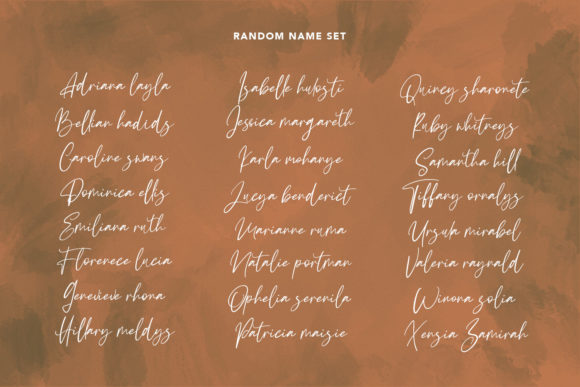 RANDOM NAME SET
Adriana layla
Bellian hadids
Caroline swans
Dominica elks
Emiliana ruth
Florenece lucia
Genevieve rhona
Hillary meldys
Isabelle hulosti
Jessica margareth
Karla mohanye
Lucya benderict
Marianne ruma
Natalie portman
Ophelia serenila
Patricia maisie
Quincy sharonete
Ruby whitneys
Samantha hill
Tiffany ornalys
Ursula mirabel
Valeria raynald
Winona solia
Xensia Zamirah